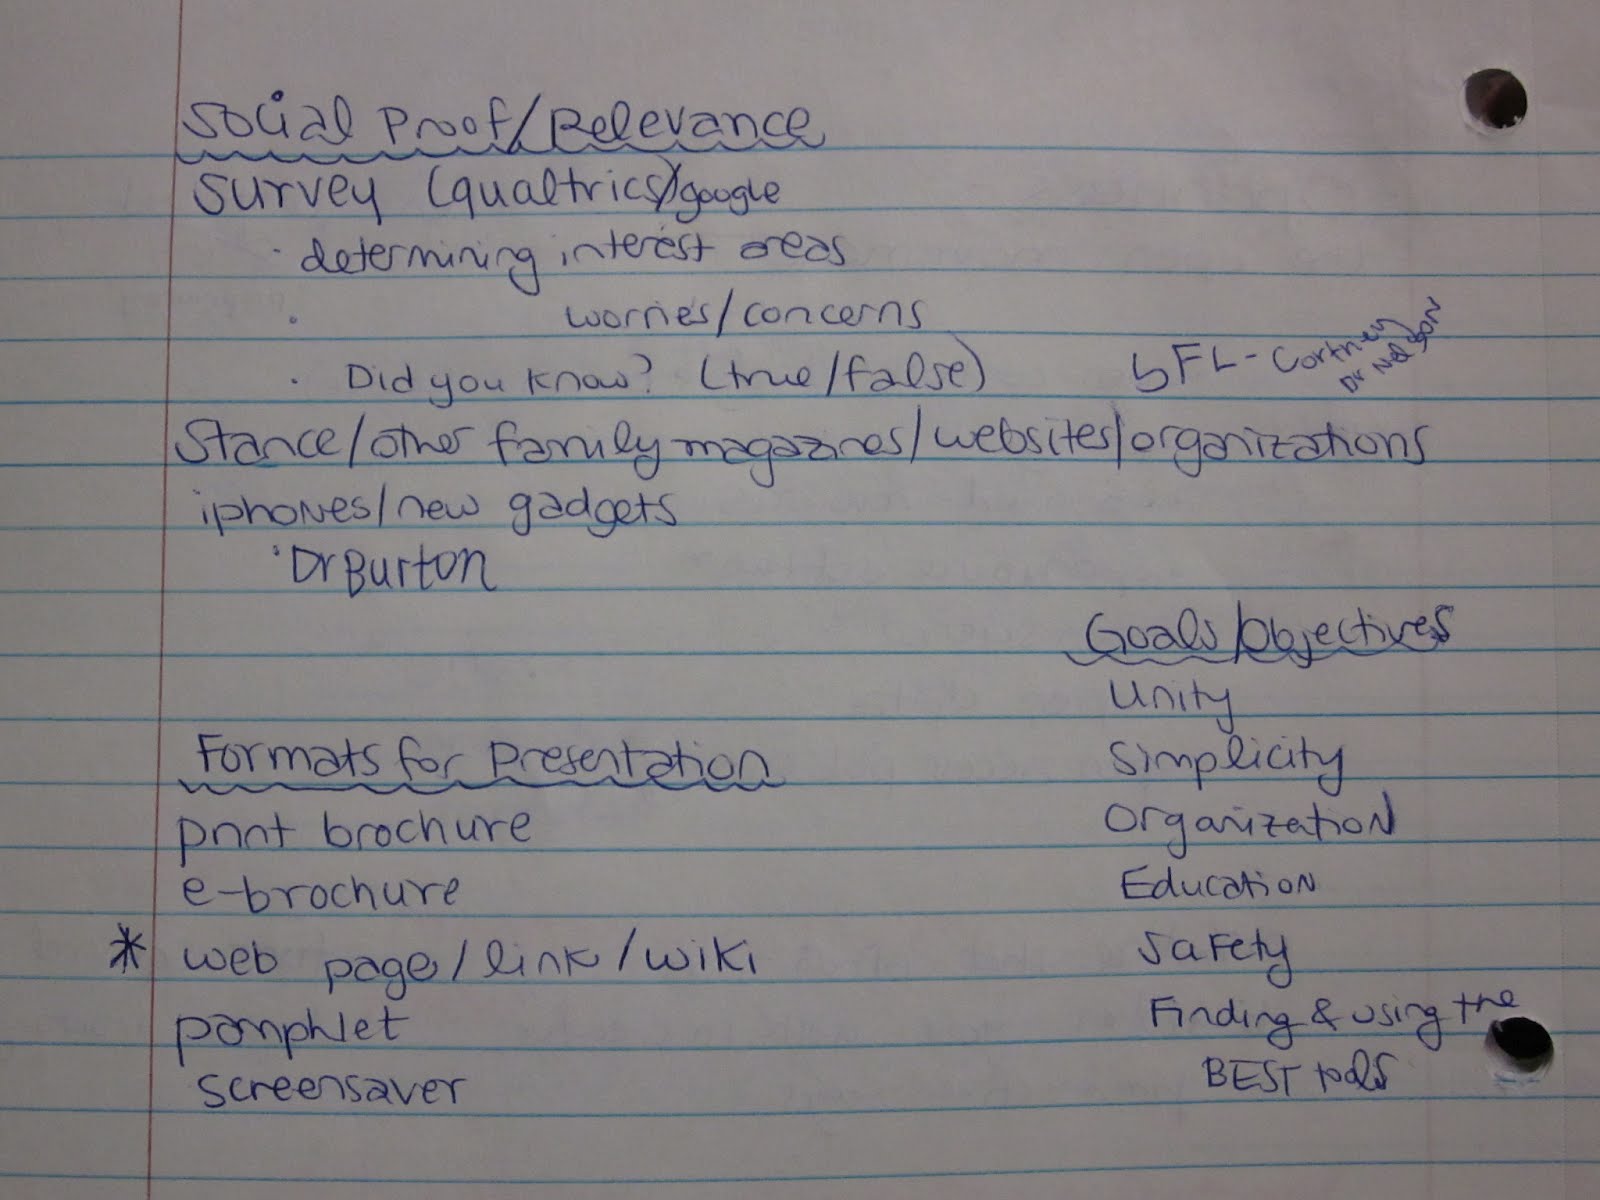 Social Proof/Relevance
Survey (qualtrics)/google
· determining interest areas
· worries/concerns
· Did you know? (true/false)
SFL - Cortney
Dr Nelson
Stance/other family magazines/websites/organizations
iphones/new gadgets
· Dr Burton
Goals/Objectives
Unity
Simplicity
Organization
Education
Safety
Finding & using the
BEST tools
Formats for Presentation
print brochure
e-brochure
* web page/link/wiki
pamphlet
screensaver